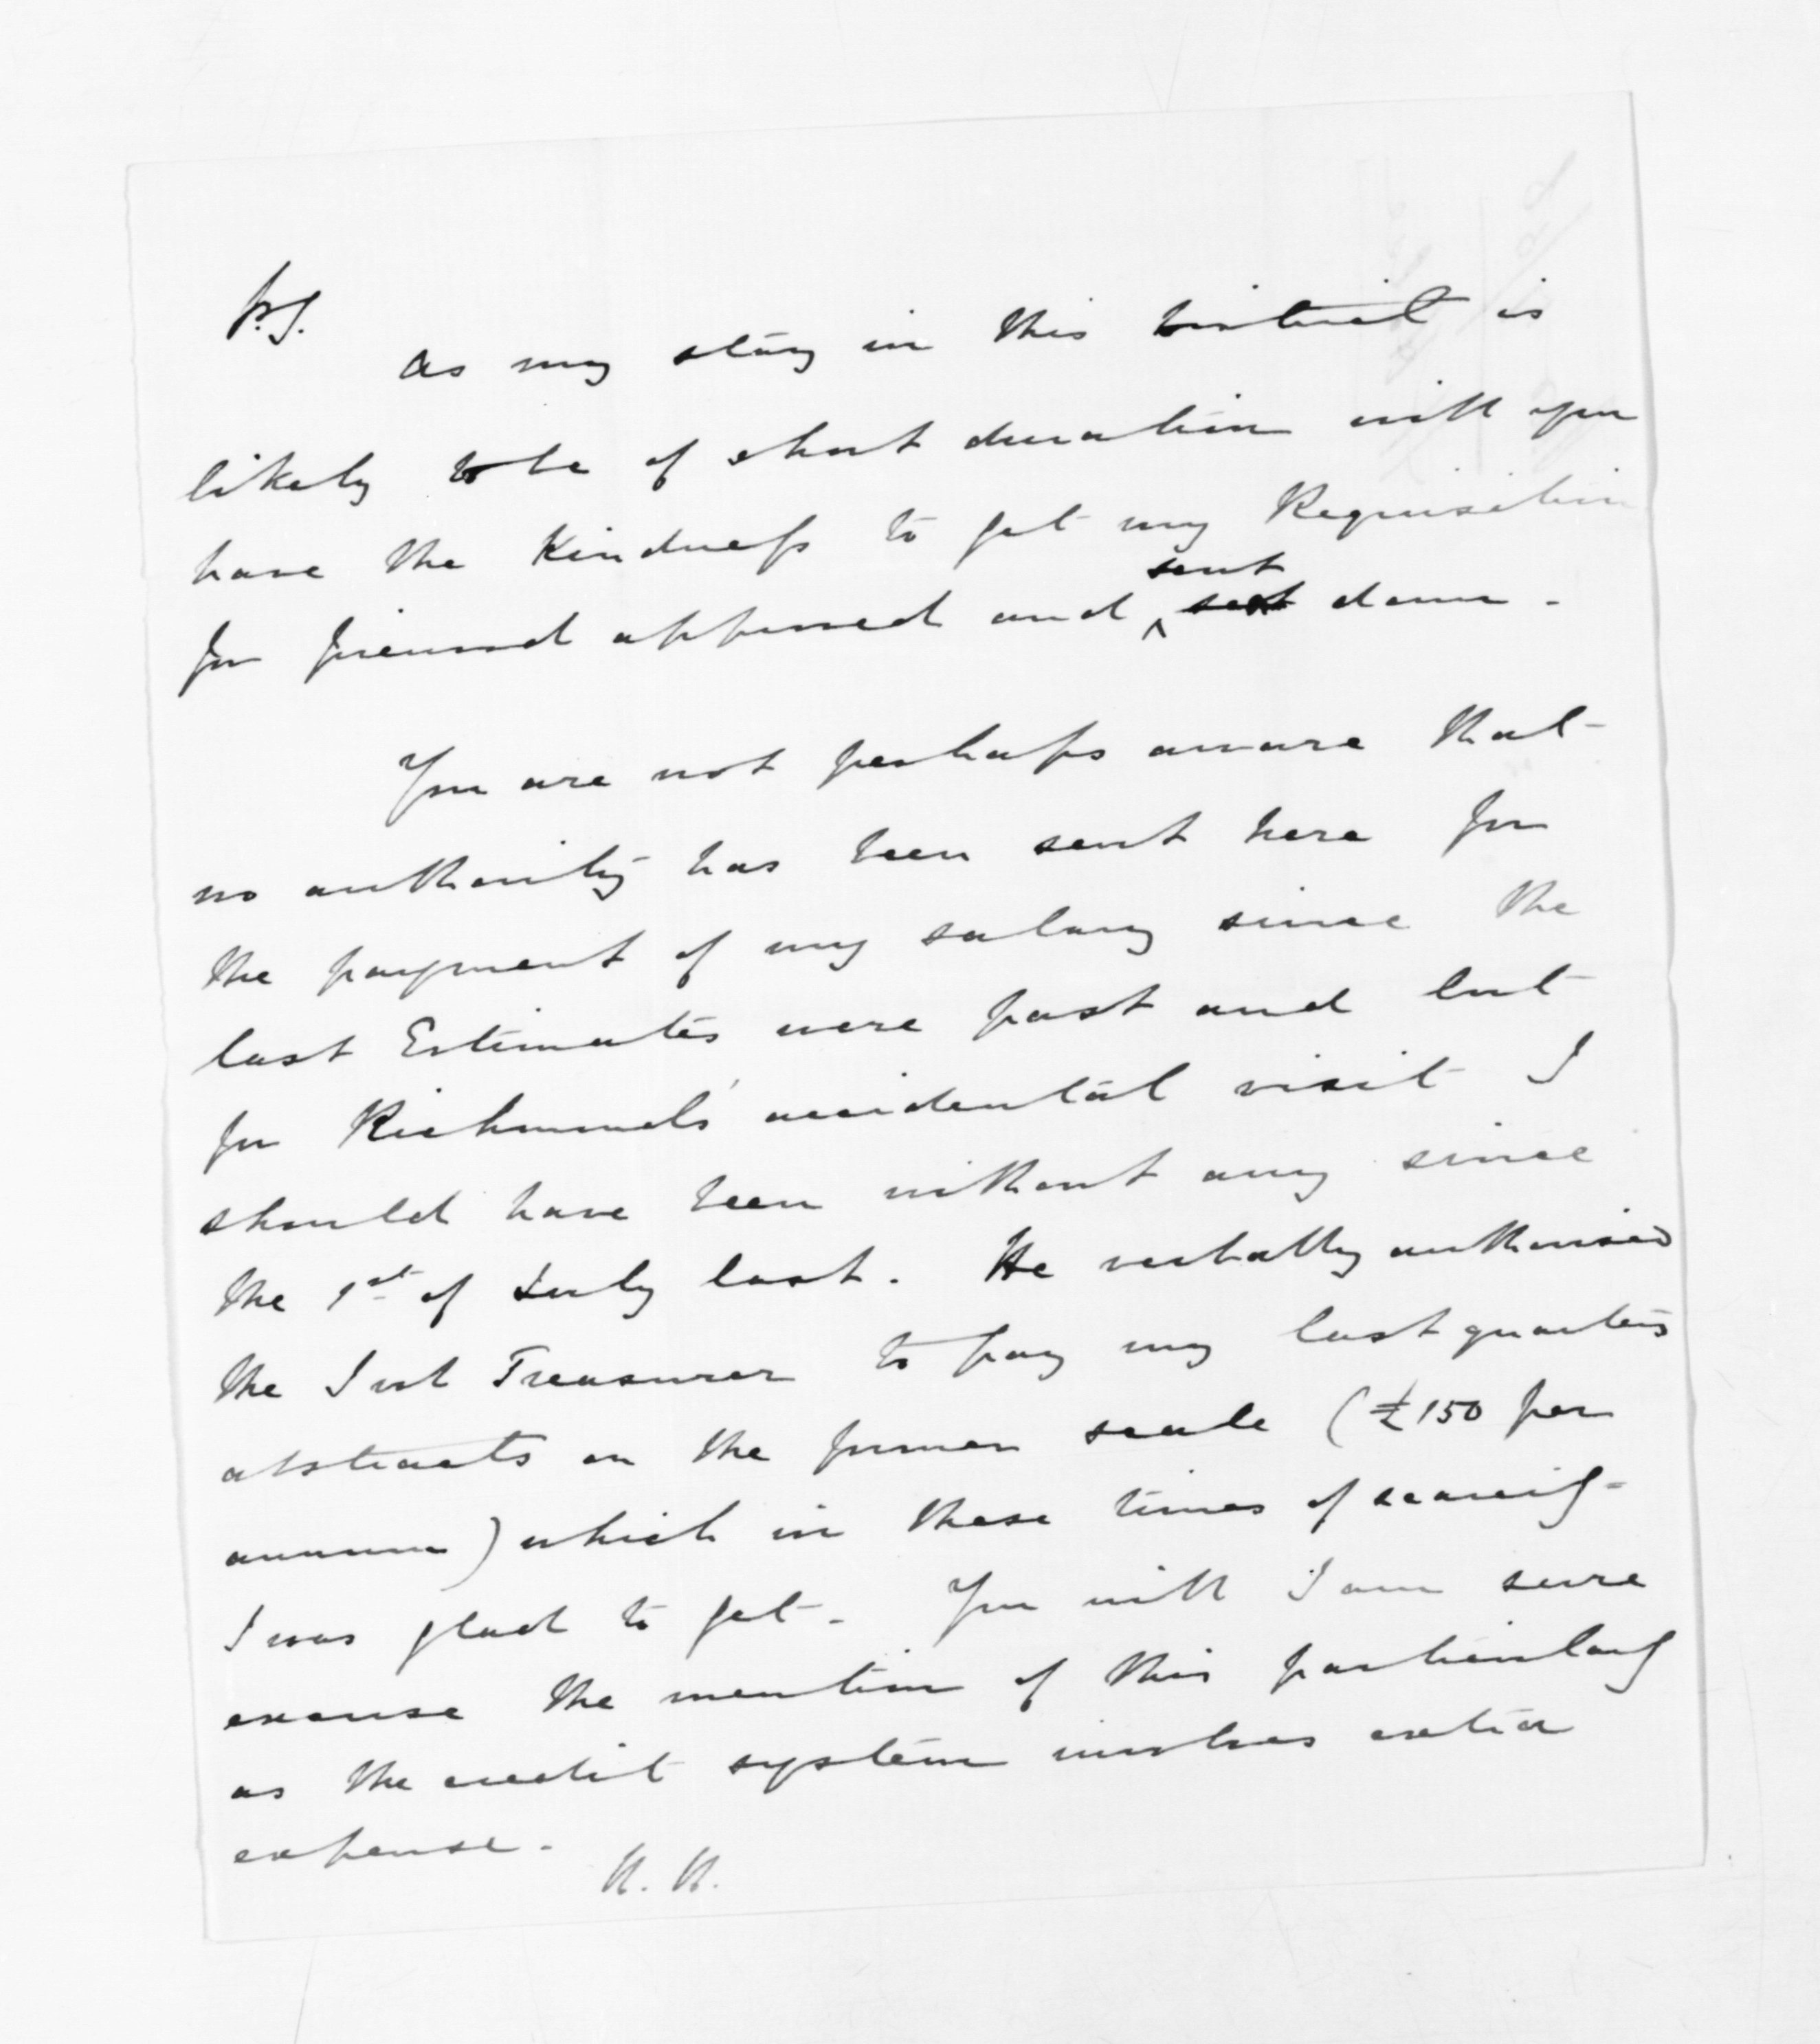 P.S.
As my stay in this District is
likely to be of short duration will you
have the kindness to get my Requisition
for forward approved and sent down -
You are not perhaps aware that
no authority has been sent here for
the payment of my salary since the
last Estimates were past and but
for Richmond's accidental visit I
should have been without any since
the 1st of July last. He verbally authorised
the Sub Treasurer to pay my last quarters
abstracts on the former scale (£150 per
annum) which in these times of scarcity
I was glad to get - You will I am sure
excuse the mention of this particularly
as the credit system involves extra
expense -
H. H.